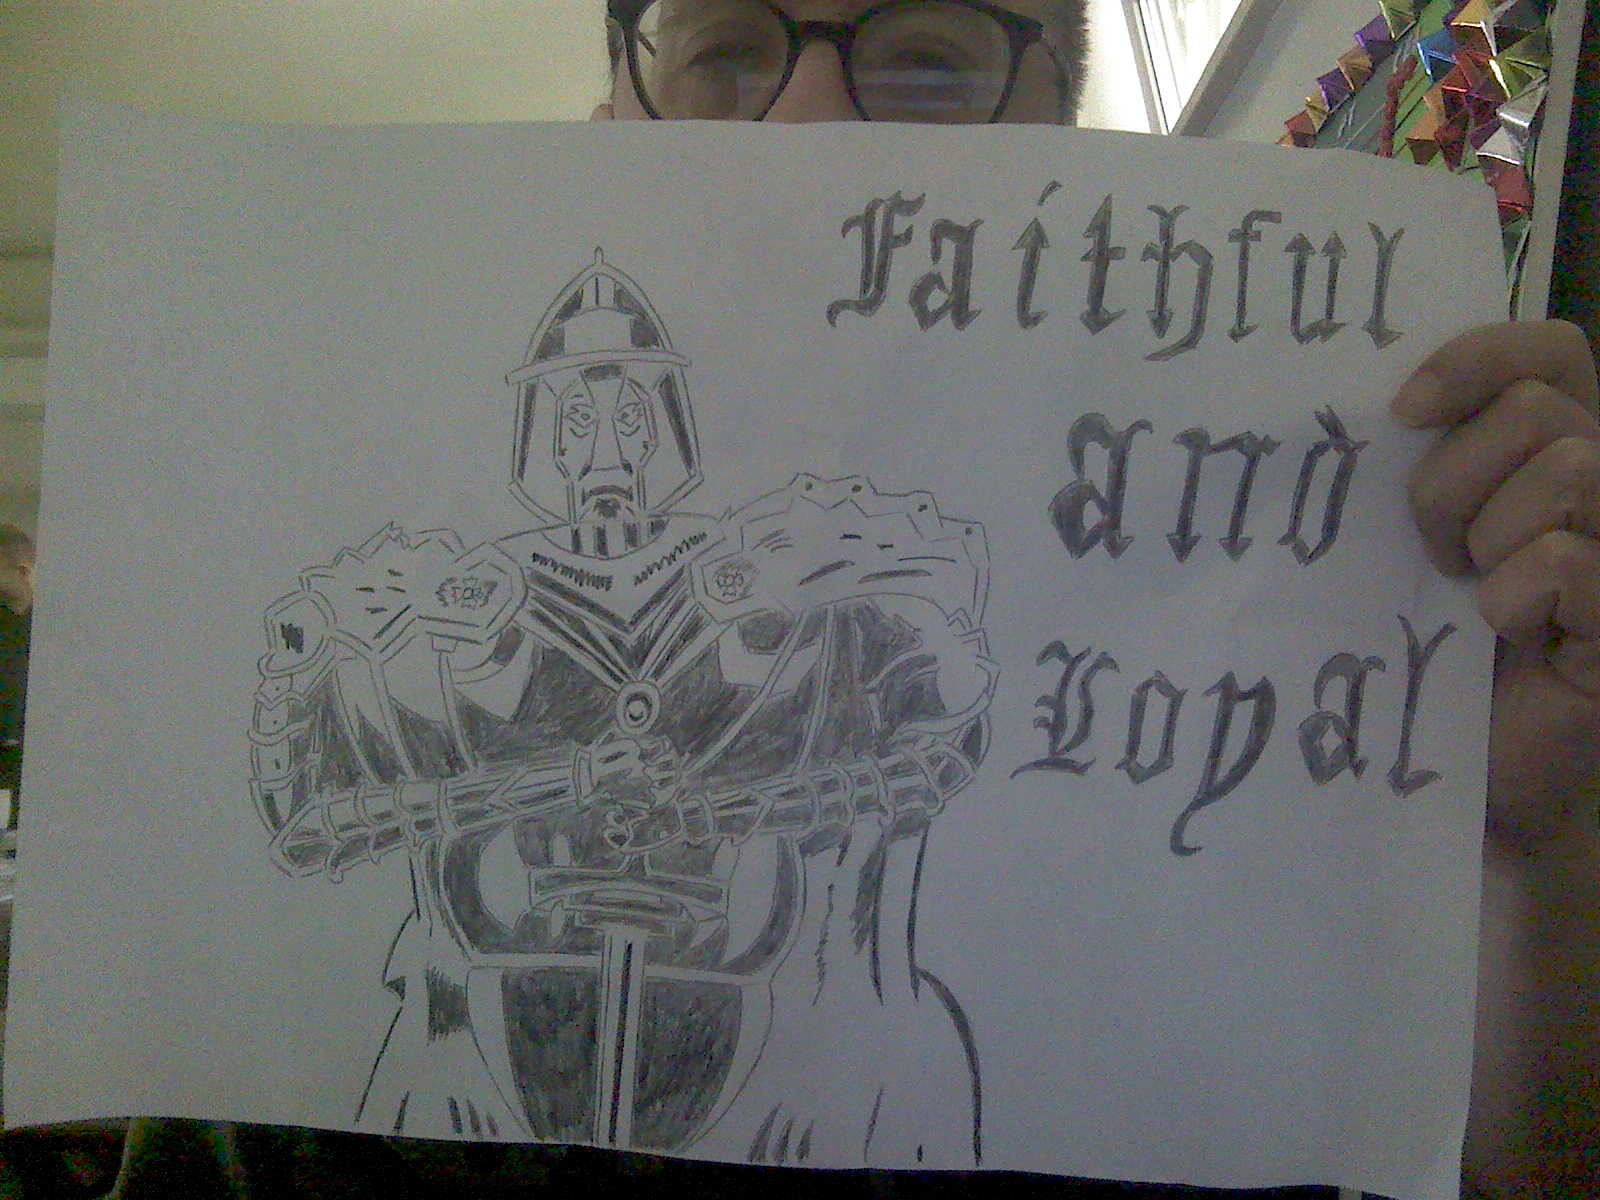 Faithful
and
Loyal